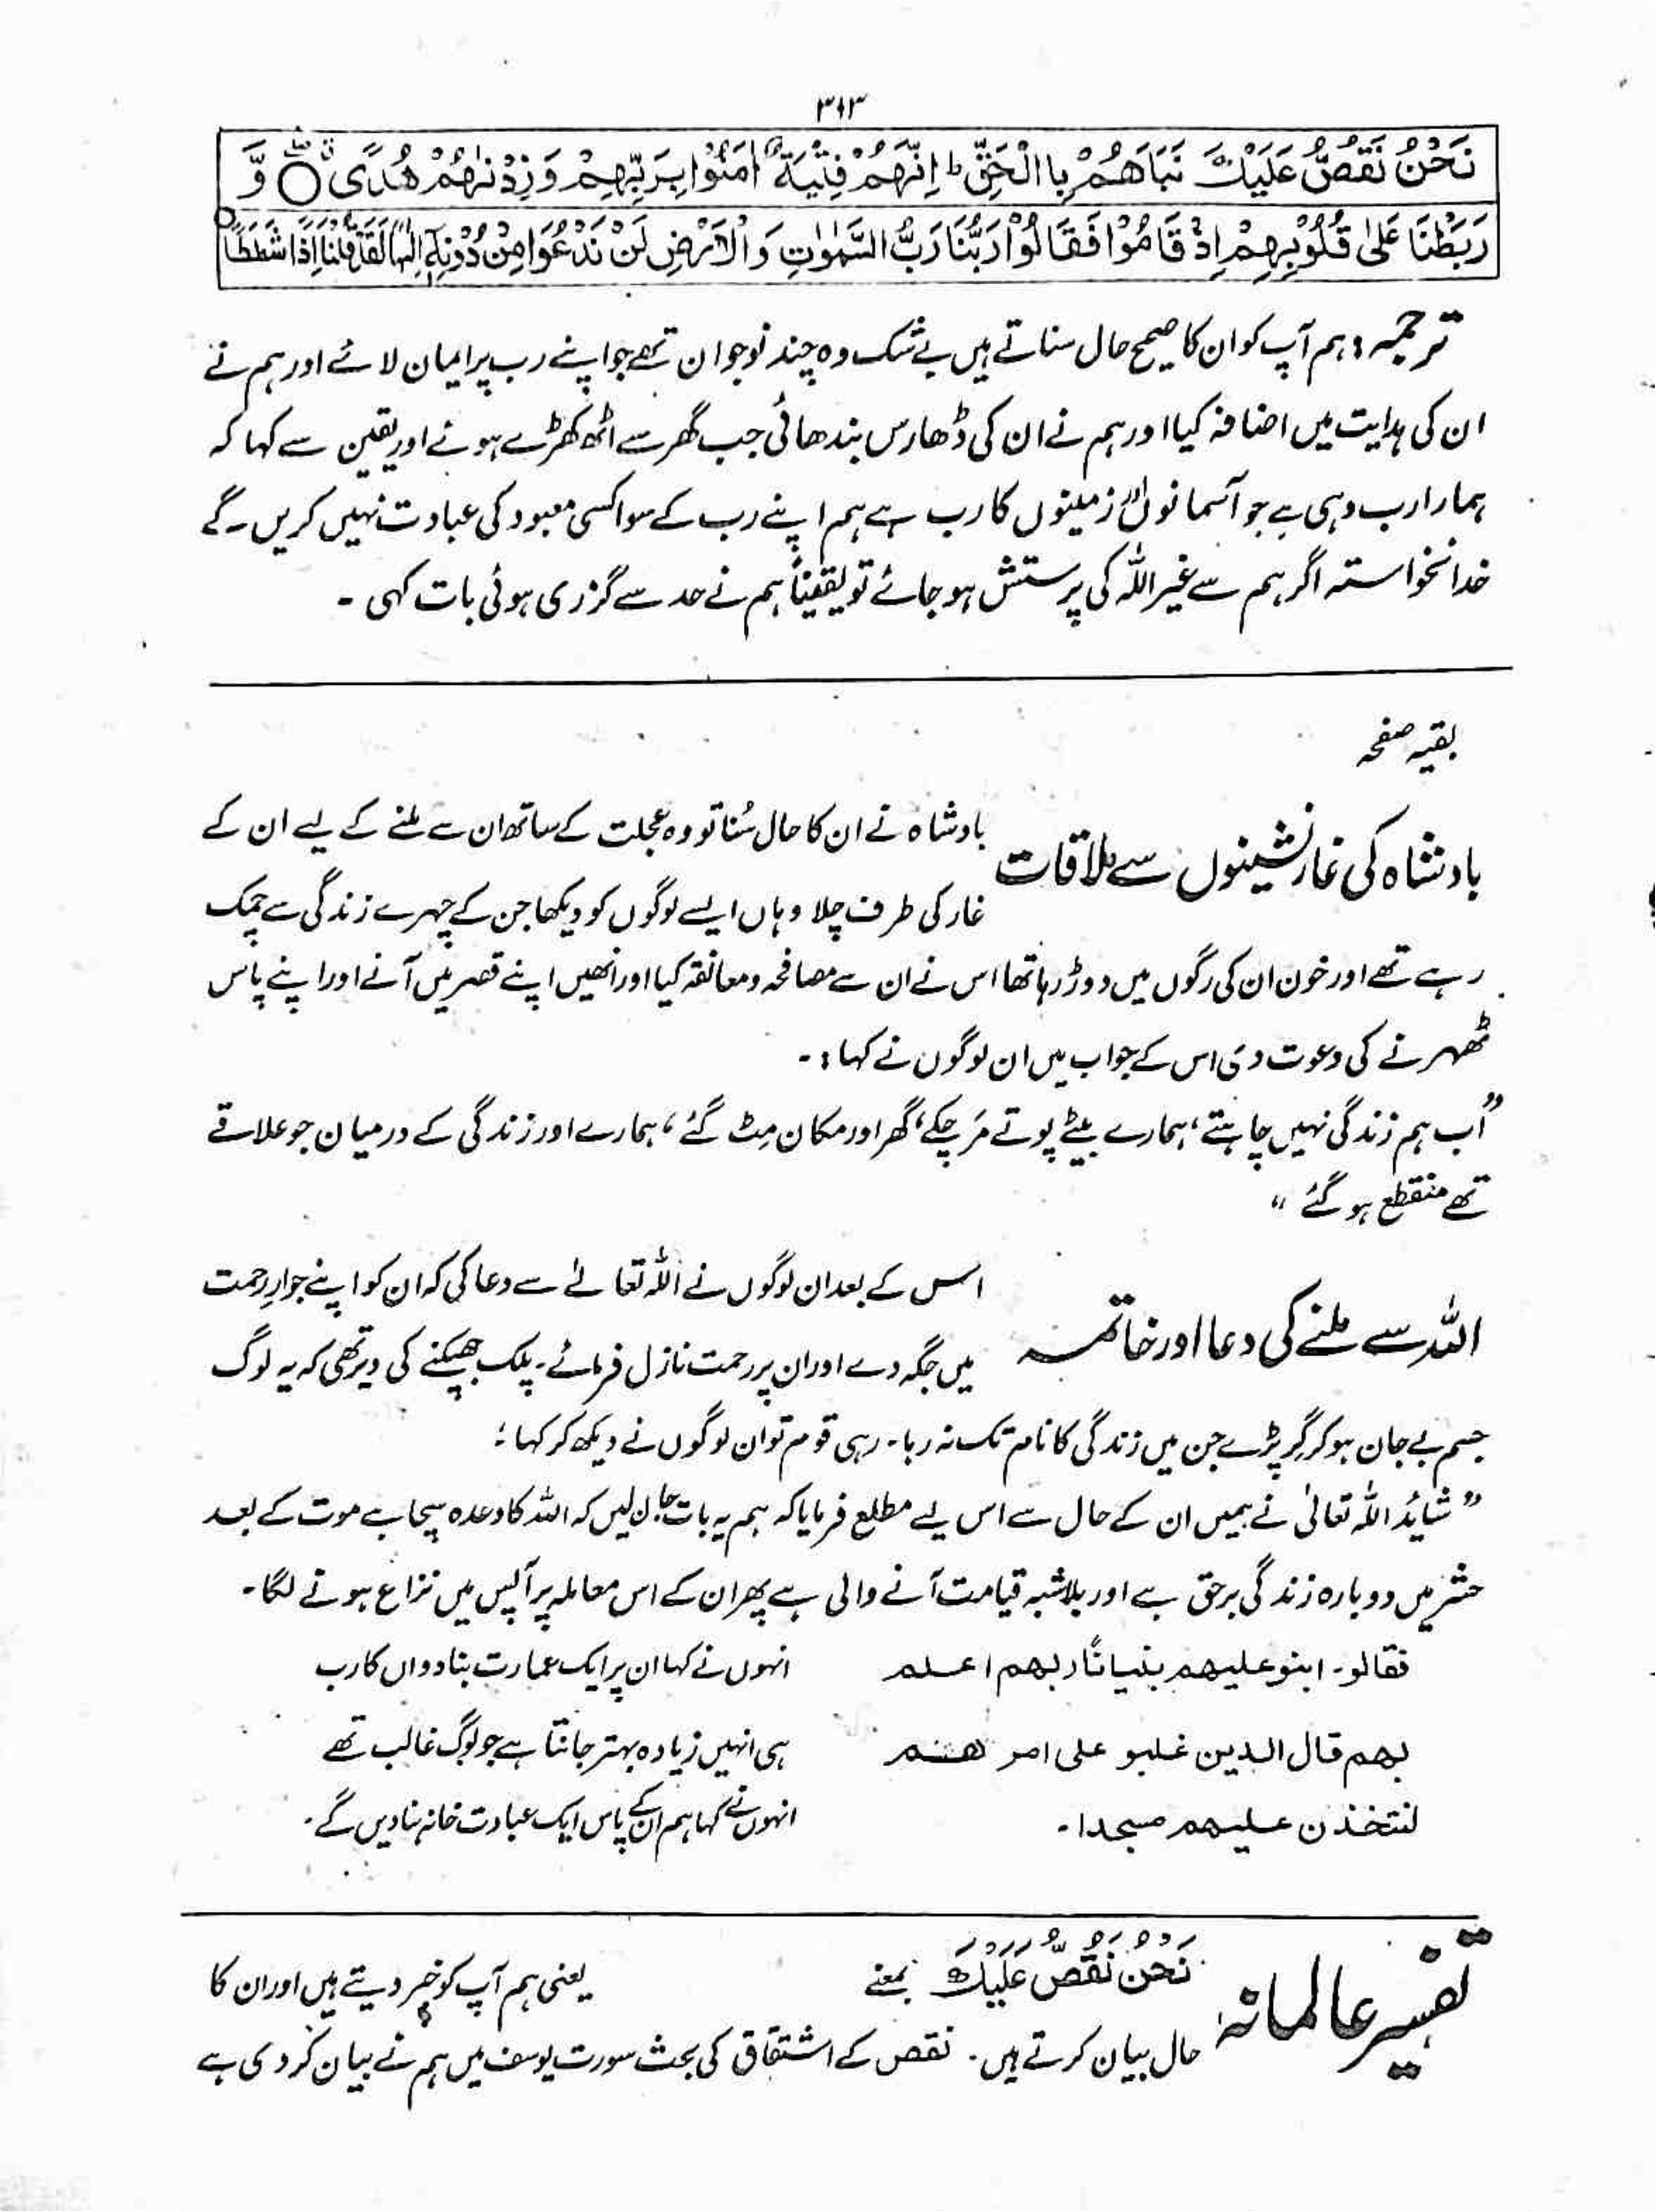 ۳۱۳
نَحْنُ نَقُصُّ عَلَيْكَ نَبَاَهُمْ بِاالْحَقِّ ؕ اِنَّهُمْ فِتْيَةٌ اٰمَنُوْا بِرَبِّهِمْ وَزِدْنٰهُمْ هُدًى ۝ وَّ
رَبَطْنَا عَلٰى قُلُوْبِهِمْ اِذْ قَامُوْا فَقَالُوْا رَبُّنَا رَبُّ السَّمٰوٰتِ وَالْاَرْضِ لَنْ نَدْعُوَا مِنْ دُوْنِهٖۤ اِلٰهًا لَقَدْ قُلْنَا اِذًا شَطَطًا
ترجمہ: ہم آپ کو ان کا صحیح حال سناتے ہیں بے شک وہ چند نوجوان تھے جو اپنے رب پر ایمان لائے اور ہم نے
ان کی ہدایت میں اضافہ کیا اور ہم نے ان کی ڈھارس بندھائی جب گھر سے اٹھ کھڑے ہوئے اور یقین سے کہا کہ
ہمارا رب وہی ہے جو آسمانوں اور زمینوں کا رب ہے ہم اپنے رب کے سوا کسی معبود کی عبادت نہیں کریں۔گے
خدانخواستہ اگر ہم سے غیر اللہ کی پرستش ہو جائے تو یقیناً ہم نے حد سے گزری ہوئی بات کہی ۔
بقیہ صفحہ
بادشاہ کی غار نشینوں سے ملاقات
بادشاہ نے ان کا حال سُنا تو وہ عجلت کے ساتھ ان سے ملنے کے لیے ان کے
غار کی طرف چلا وہاں ایسے لوگوں کو دیکھا جن کے چہرے زندگی سے چمک
رہے تھے اور خون ان کی رگوں میں دوڑ رہا تھا اس نے ان سے مصافحہ و معانقہ کیا اور انھیں اپنے قصر میں آنے اور اپنے پاس
ٹھہرنے کی دعوت دی اس کے جواب میں ان لوگوں نے کہا :۔
"اَب ہم زندگی نہیں چاہتے، ہمارے بیٹے پوتے مَر چکے، گھر اور مکان مِٹ گئے، ہمارے اور زندگی کے درمیان جو علاقے
تھے منقطع ہو گئے "
اللہ سے ملنے کی دعا اور خاتمہ
اس کے بعد ان لوگوں نے اللہ تعالےٰ سے دعا کی کہ ان کو اپنے جوارِ رحمت
میں جگہ دے اور ان پر رحمت نازل فرمائے۔ پلک جھپکنے کی دیر تھی کہ یہ لوگ
جسم بے جان ہو کر گِر پڑے جن میں زندگی کا نام تک نہ رہا۔ رہی قوم تو ان لوگوں نے دیکھ کر کہا :
" شائد اللہ تعالیٰ نے ہمیں ان کے حال سے اس لیے مطلع فرمایا کہ ہم یہ بات جان لیں کہ اللہ کا وعدہ سچا ہے موت کے بعد
حشر میں دوبارہ زندگی برحق ہے اور بلاشبہ قیامت آنے والی ہے پھر ان کے اس معاملہ پر آپس میں نزاع ہونے لگا۔
فقالو۔ ابنو علیھم بنیانًا ربھم اعلم
انہوں نے کہا ان پر ایک عمارت بنا دو ان کا رب
بھم قال الذین غلبو علی امر ھم
ہی انہیں زیادہ بہتر جانتا ہے جو لوگ غالب تھے
لنتخذن علیھم مسجدا۔
انہوں نے کہا ہم ان کے پاس ایک عبادت خانہ بنا دیں گے۔
تفسیر عالمانہ
نَحْنُ نَقُصُّ عَلَيْكَ بمعنے یعنی ہم آپ کو خبر دیتے ہیں اور ان کا
حال بیان کرتے ہیں۔ نقص کے اشتقاق کی بحث سورت یوسف میں ہم نے بیان کر دی ہے